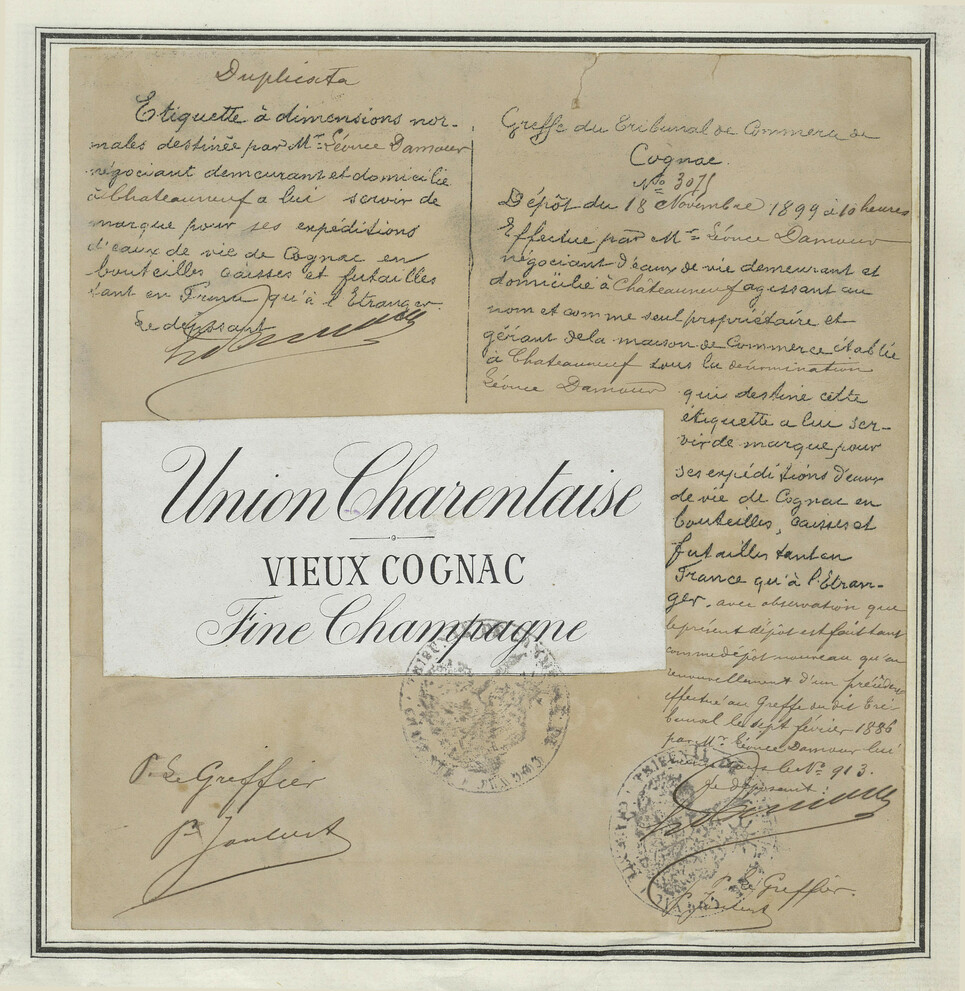 Duplicata
Etiquette à dimensions nor-
males destinée par Mr. Léonce Damour
négociant demeurant et domicilié
à Chateauneuf a lui servir de
marque pour ses expéditions
d'eaux de vie de Cognac en
bouteilles caisses et futailles
tant en France qu'à l'Etranger.
Le déposant
Greffe du Tribunal de Commerce de
Cognac.
No 3075
Dépôt du 18 Novembre 1899 à 10 heures
Effectué par Mr Léonce Damour
négociant d'eaux de vie demeurant et
domicilié à Châteauneuf agissant au
nom et comme seul propriétaire et
gérant de la maison de Commerce établie
à Chateauneuf sous la dénomination
Léonce Damour qui destine cette
étiquette a lui ser-
vir de marque pour
ses expéditions d'eaux
de vie de Cognac en
bouteilles, caisses et
futailles tant en
France qu'à l'Etran-
ger. avec observation que
le présent dépôt est fait tant
comme dépôt nouveau qu'en
renouvellement d'un précédent
effectué au Greffe du dit Tri-
bunal le sept février 1886
par Mr. Léonce Damour
le No 913.
Le déposant:
Union Charentaise
VIEUX COGNAC
Fine Champagne
P. Le Greffier
P. Joubert
P. Le Greffier.
P. Joubert